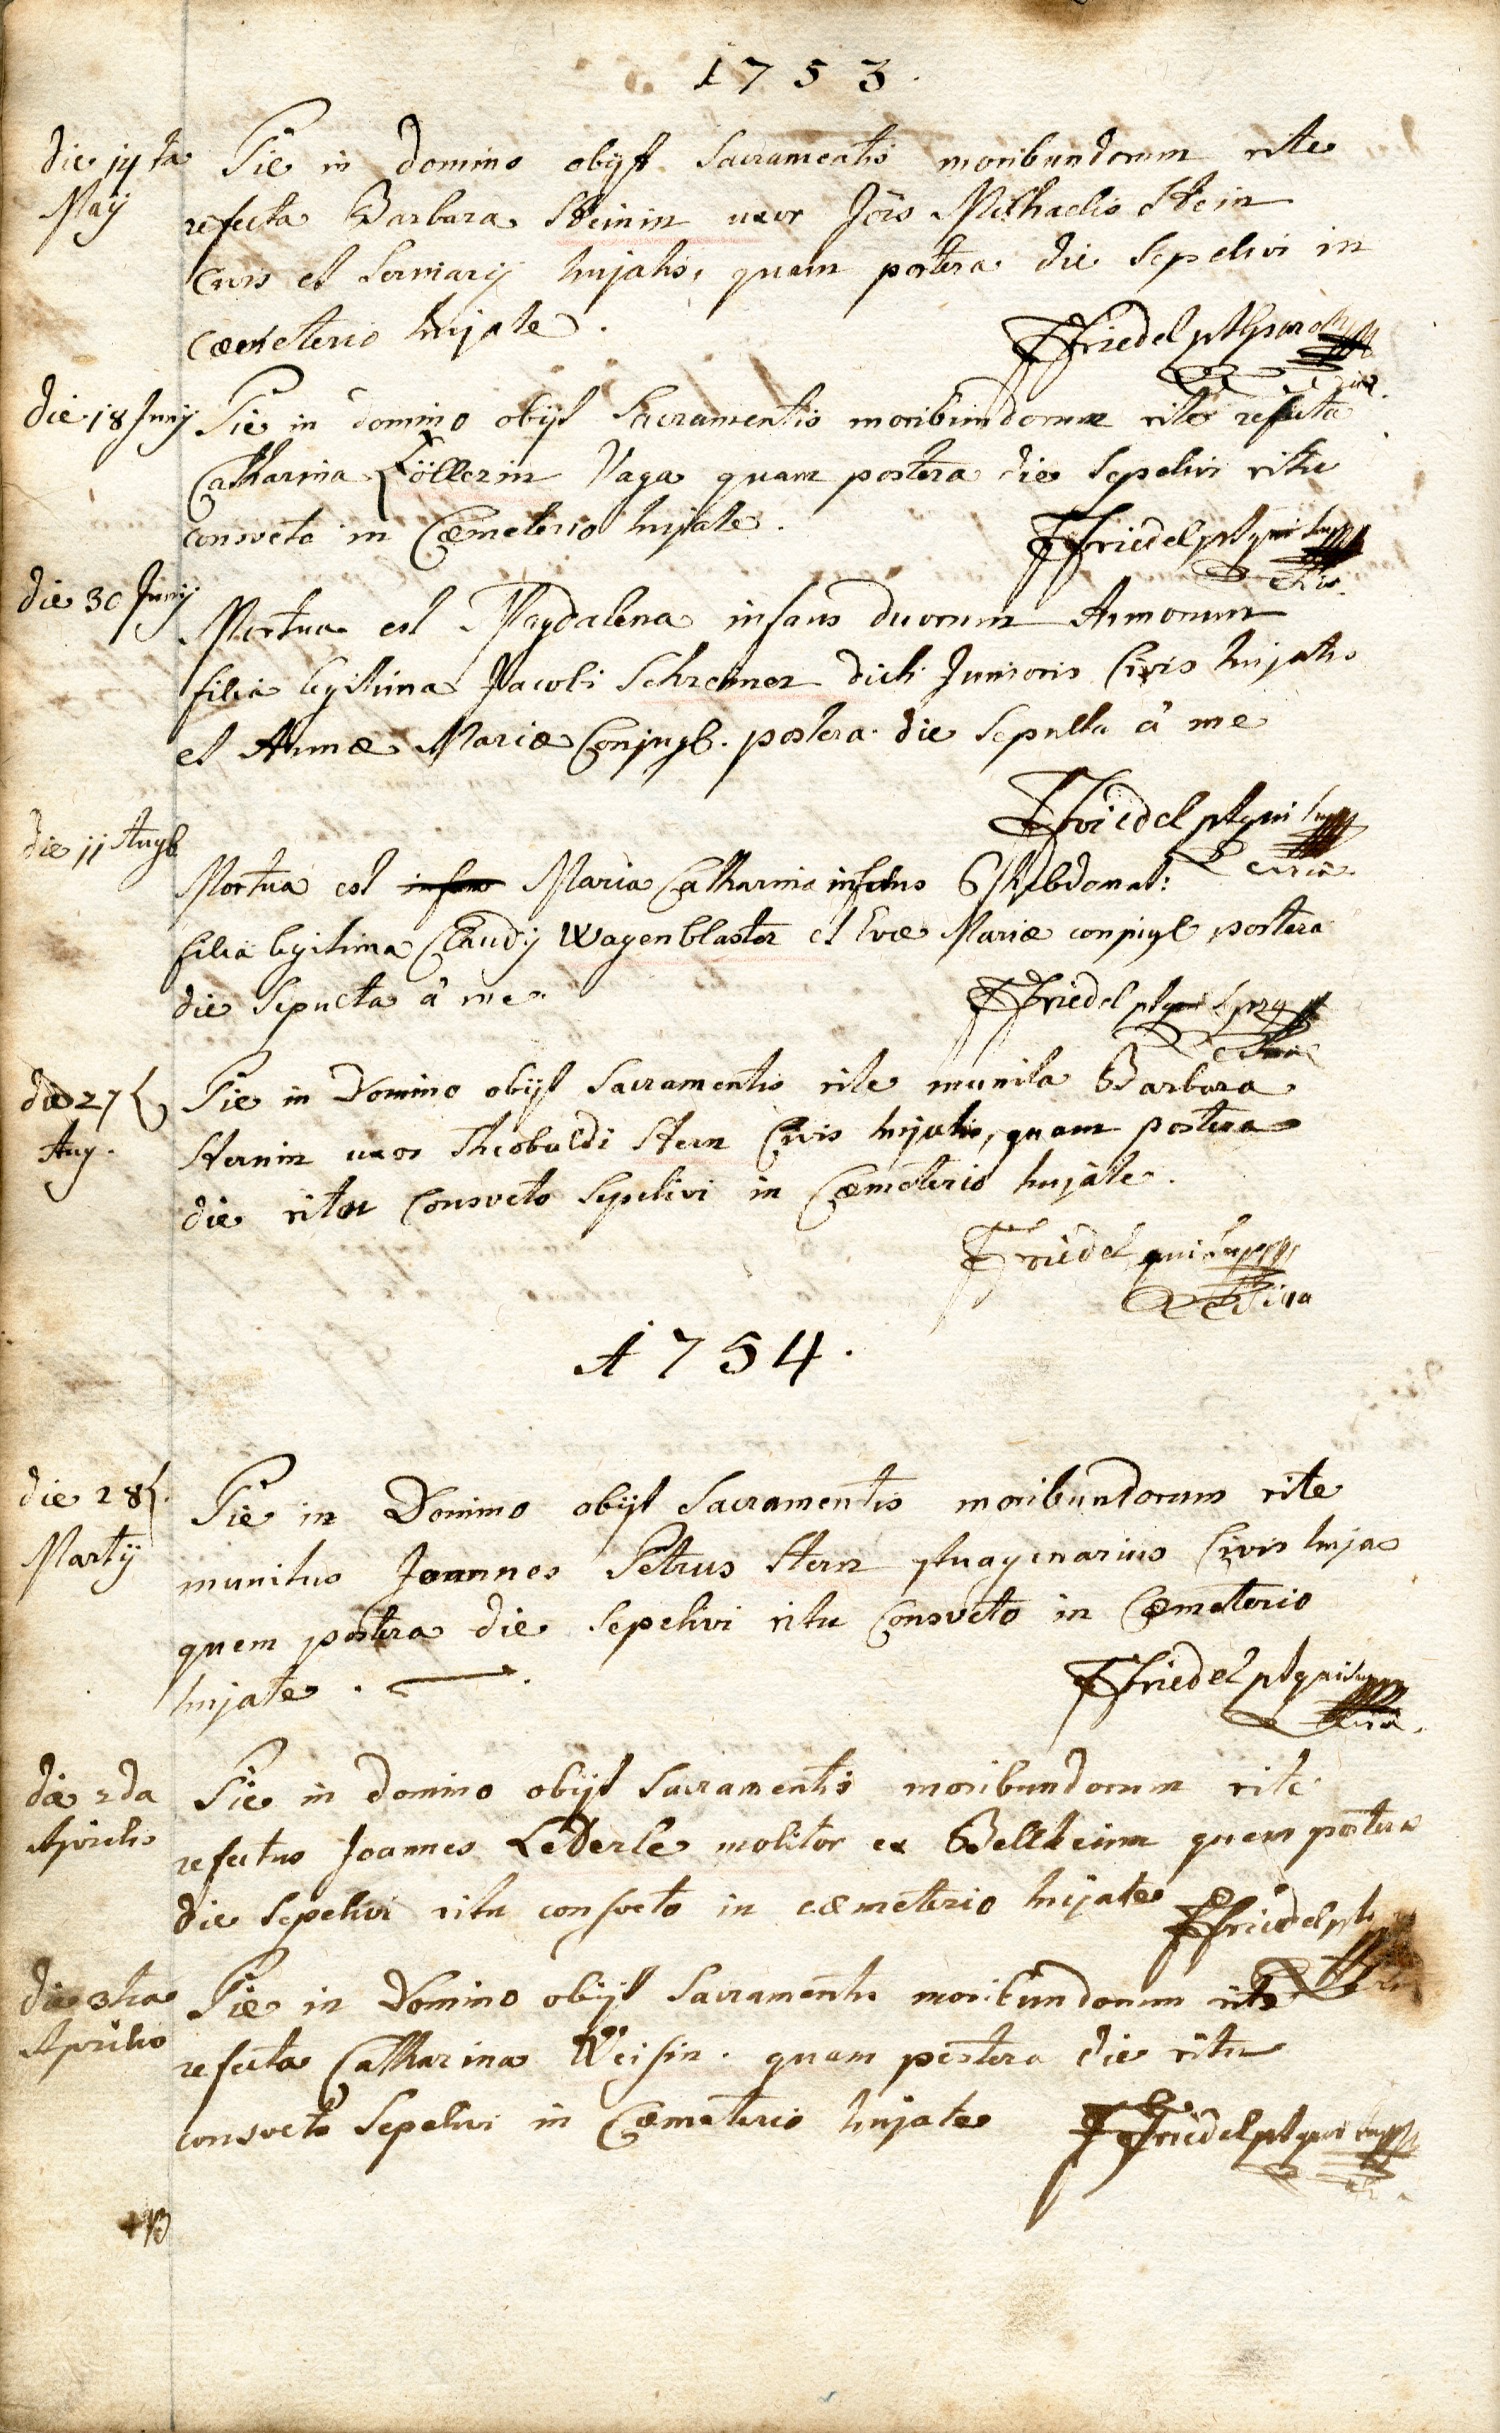 1753.
die 14ta Pie in domino obijt Sacramentis moribundorum rite
Maij refecta Barbara Steinin uxor Jöis Michaelis Stein
Civis et hujatis, quam postera die Sepelivi in
coemeterio hujate.
FFriedel
die 18 Junij Pie in domino obijt Sacramentis moribundorum rite refecta
Catharina Zöllerin Vaga quam postera die Sepelivi ritu
consveto in Coemeterio hujate.
FFriedel
die 30 Junij
Mortua est Magdalena infans duorum Annorum
filia legitima Jacobi Schreiner dicti Junioris Civis hujatis
et Annæ Mariæ Conjugb. postera die Sepulta à me
FFriedel
die 11 Augb
Mortua est infans Maria Catharina infans 6 Hebdomad:
filia legitima Claudij Wagenblaster et Evæ Mariæ conjugb postera
die Sepulta à me.
FFriedel
die 27 Pie in Domino obijt Sacramentis rite munita Barbara
Aug. Sternin uxor Theobaldi Stern Civis hujatis, quam postera
die ritu Consveto Sepelivi in Coemeterio hujate.
FFriedel
1754.
die 28 Pie in Domino obijt Sacramentis moribundorum rite
Martij munitus Joannes Petrus Stern Civis hujas
quem postera die Sepelivi ritu Consveto in Coemeterio
hujate.
FFriedel
die 2da Pie in domino obijt Sacramentis moribundorum rite
Aprilis refectus Joannes Lederle molitor ex Bellheim quem postera
die Sepelivi ritu consveto in coemeterio hujate FFriedel
die 3tia Pie in Domino obijt Sacramentis moribundorum rite
Aprilis refecta Catharina Weisin. quam postera die ritu
consveto Sepelivi in Coemeterio hujate FFriedel